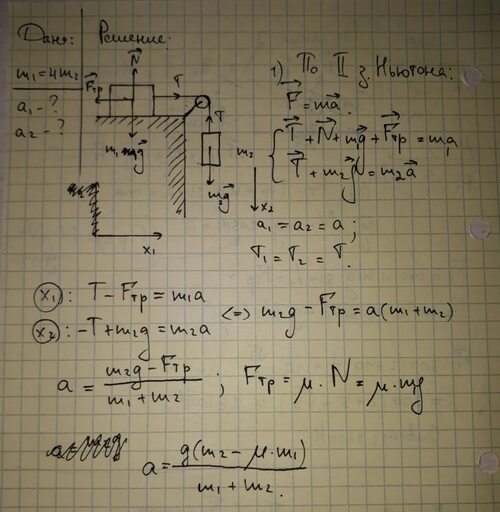 Дано:
Решение.
m₁=4m₂
a₁ - ?
a₂ - ?
N
Fтр
T
T
m₁g
m₂
m₂g
x₁
x₂
1) По II з. Ньютона:
F=ma.
T+N+m₁g+Fтр=ma₁
T+m₂g=m₂a
a₁=a₂=a;
T₁=T₂=T.
x₁: T-Fтр=m₁a
x₂: -T+m₂g=m₂a
<=> m₂g-Fтр=a(m₁+m₂)
a = (m₂g-Fтр)/(m₁+m₂); Fтр=μ·N=μ·m₁g
a = g(m₂-μ·m₁)/(m₁+m₂).